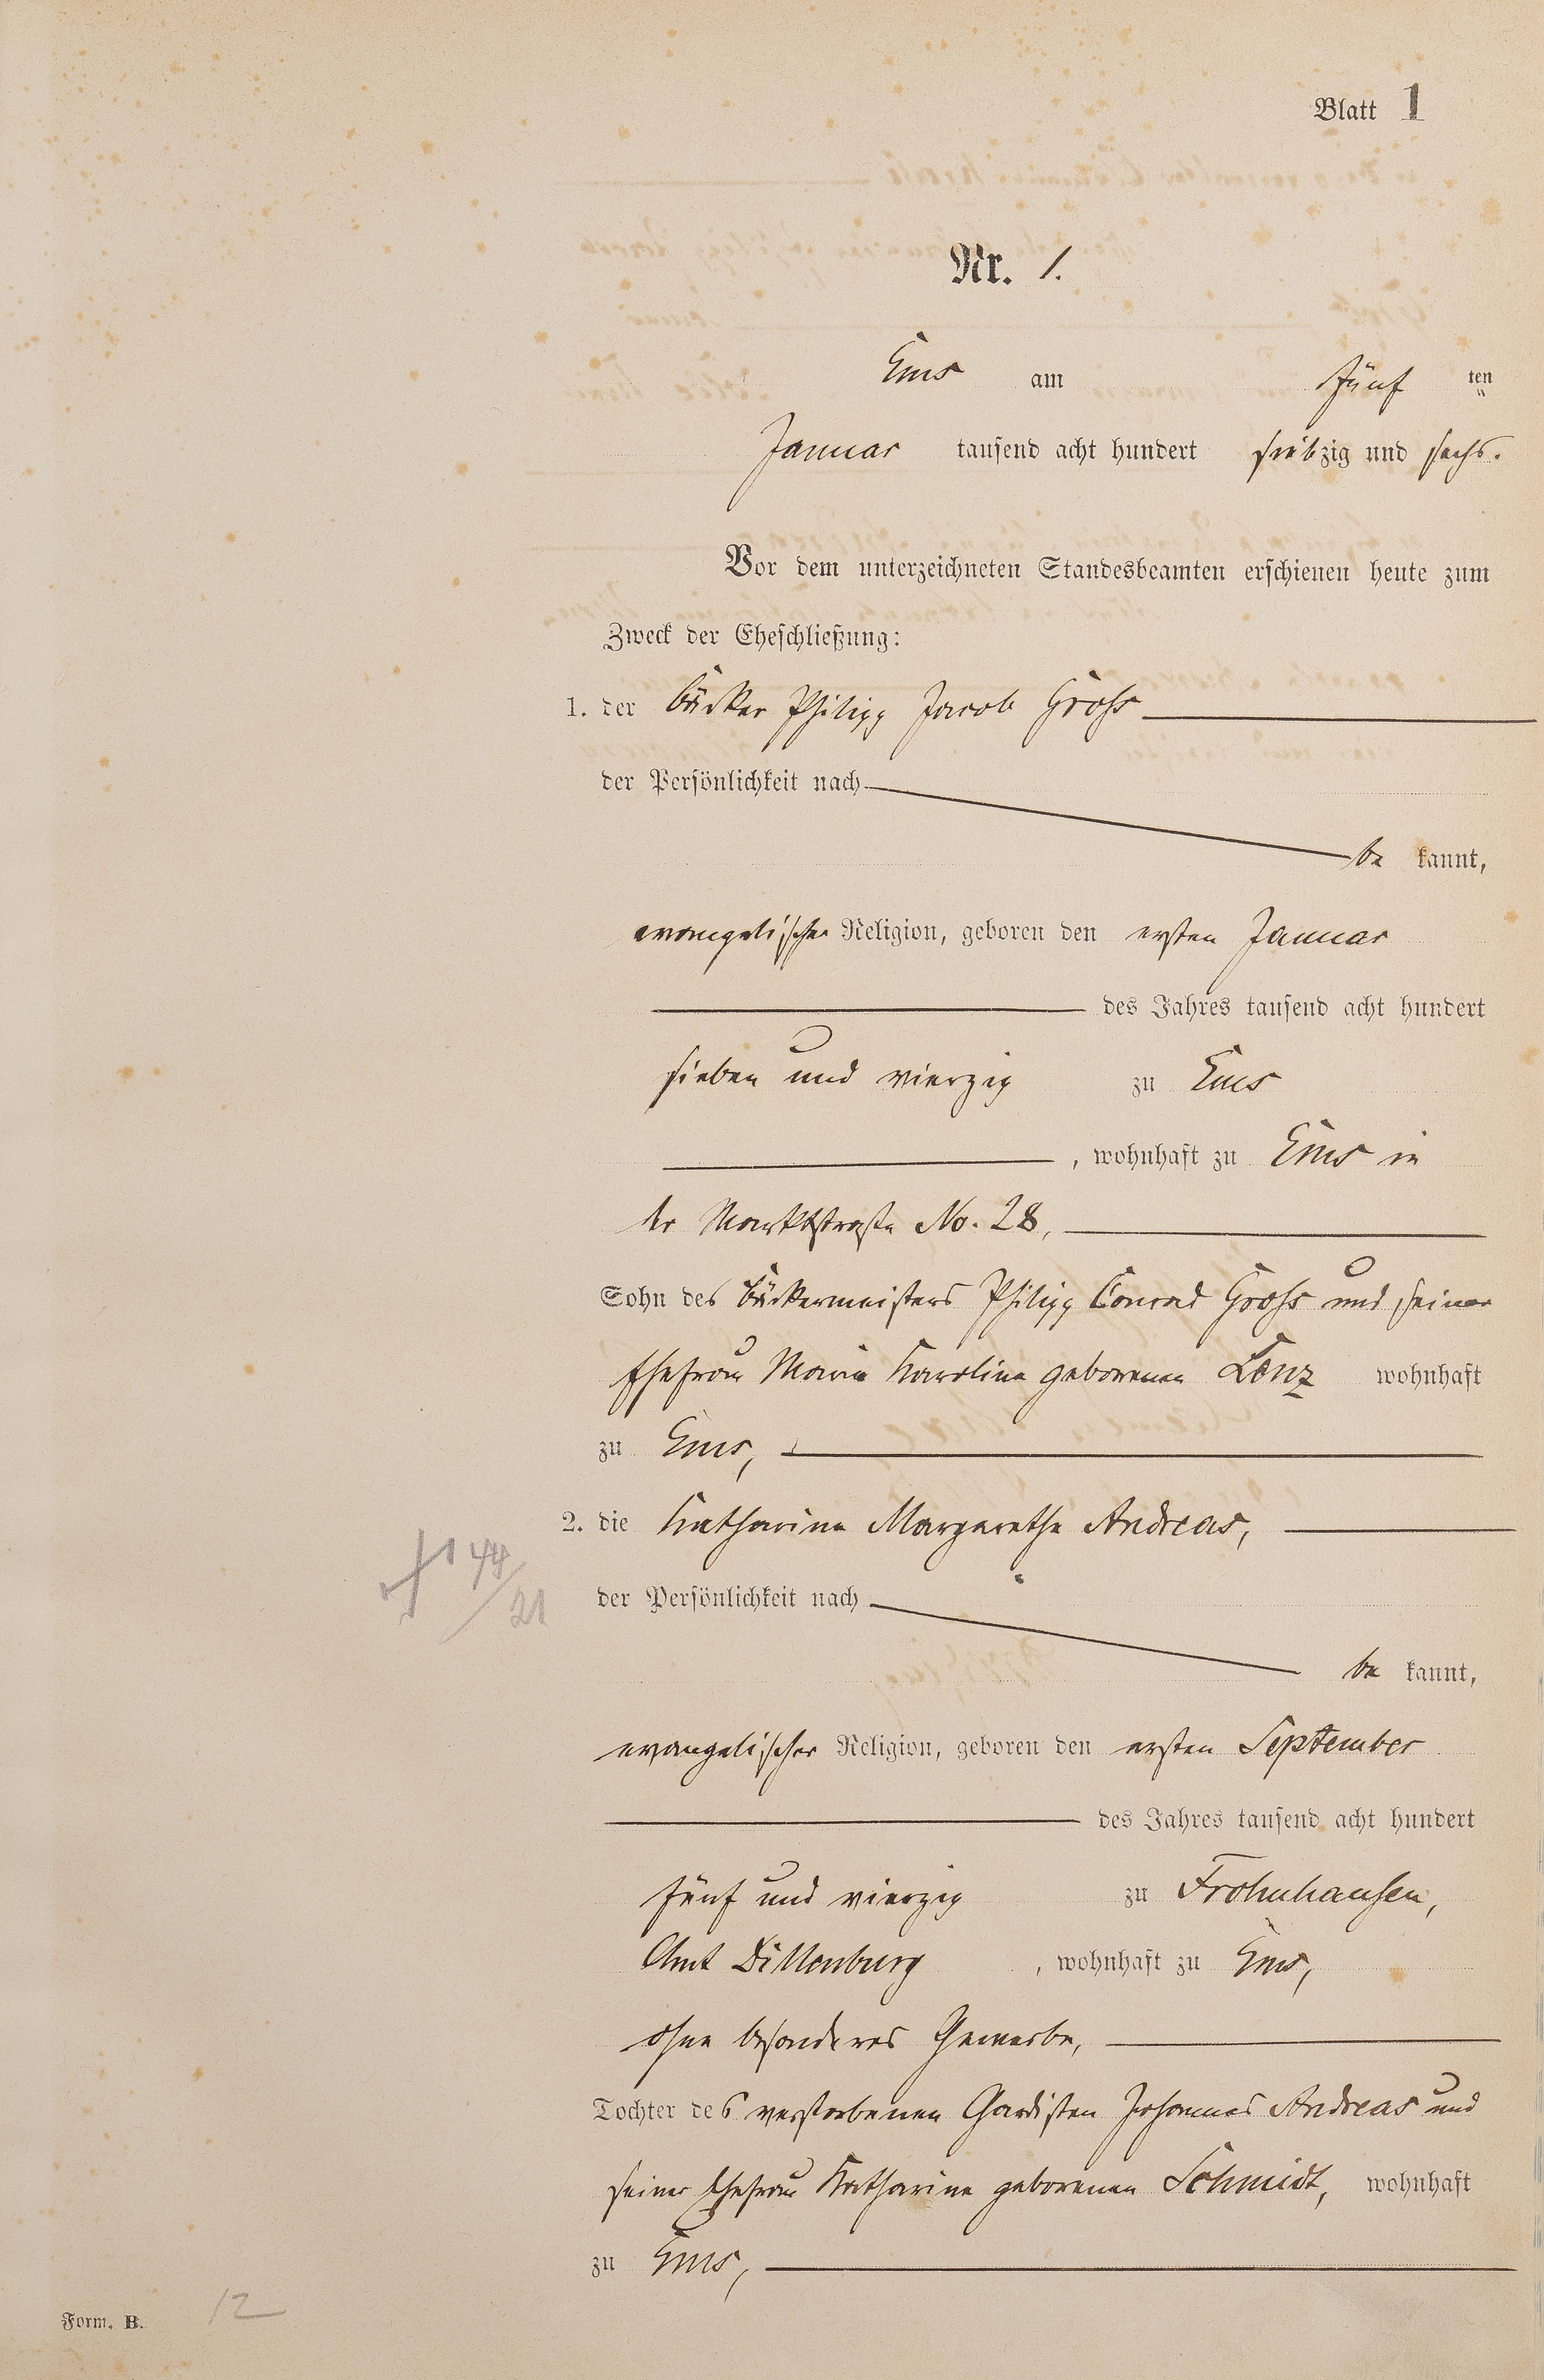 Blatt 1
Nr. 1.
Ems am fünf ten
Januar tausend acht hundert siebzig und sechs.
Vor dem unterzeichneten Standesbeamten erschienen heute zum
Zweck der Eheschließung:
1. der Bäcker Philipp Jacob Groß
der Persönlichkeit nach
be kannt,
evangelischer Religion, geboren den ersten Januar
des Jahres tausend acht hundert
sieben und vierzig zu Ems
, wohnhaft zu Ems in
der Marktstraße No. 28,
Sohn des Bäckermeisters Philipp Conrad Groß und seiner
Ehefrau Maria Karoline geborenen Lenz wohnhaft
zu Ems,
2. die Katharina Margarethe Andreas,
44/21
der Persönlichkeit nach
be kannt,
evangelischer Religion, geboren den ersten September
des Jahres tausend acht hundert
fünf und vierzig zu Frohnhausen,
Amt Dillenburg , wohnhaft zu Ems,
ohne besonderes Gewerbe,
Tochter des verstorbenen Gardisten Johannes Andreas und
seiner Ehefrau Katharine geborenen Schmidt, wohnhaft
zu Ems,
Form. B. 12